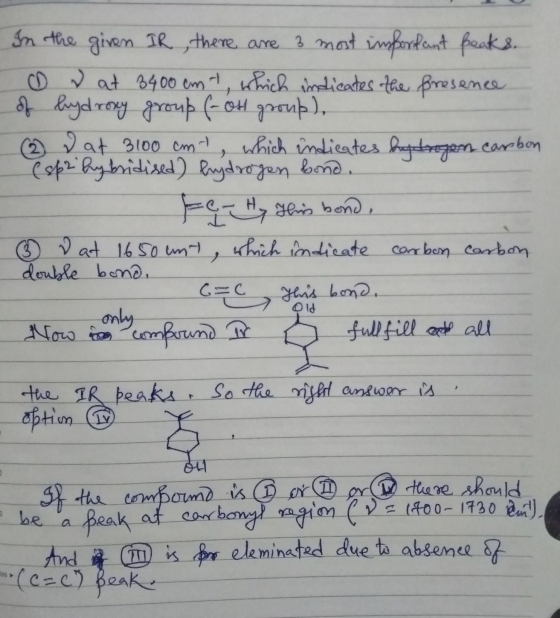 In the given IR, there are 3 most important peaks.
① ν at 3400 cm⁻¹, which indicates the presence
of hydroxy group (-OH group).
② ν at 3100 cm⁻¹, which indicates hydrogen carbon
(sp² hybridised) hydrogen bond.
=C-H → this bond.
③ ν at 1650 cm⁻¹, which indicate carbon carbon
double bond.
C=C → this bond.
OH
Now only compound IV fullfill all
the IR peaks. So the right answer is
option IV
OH
If the compound is I or II or V there should
be a peak at carbonyl region (ν = 1700-1730 cm⁻¹).
And III is eleminated due to absence of
(C=C) peak.